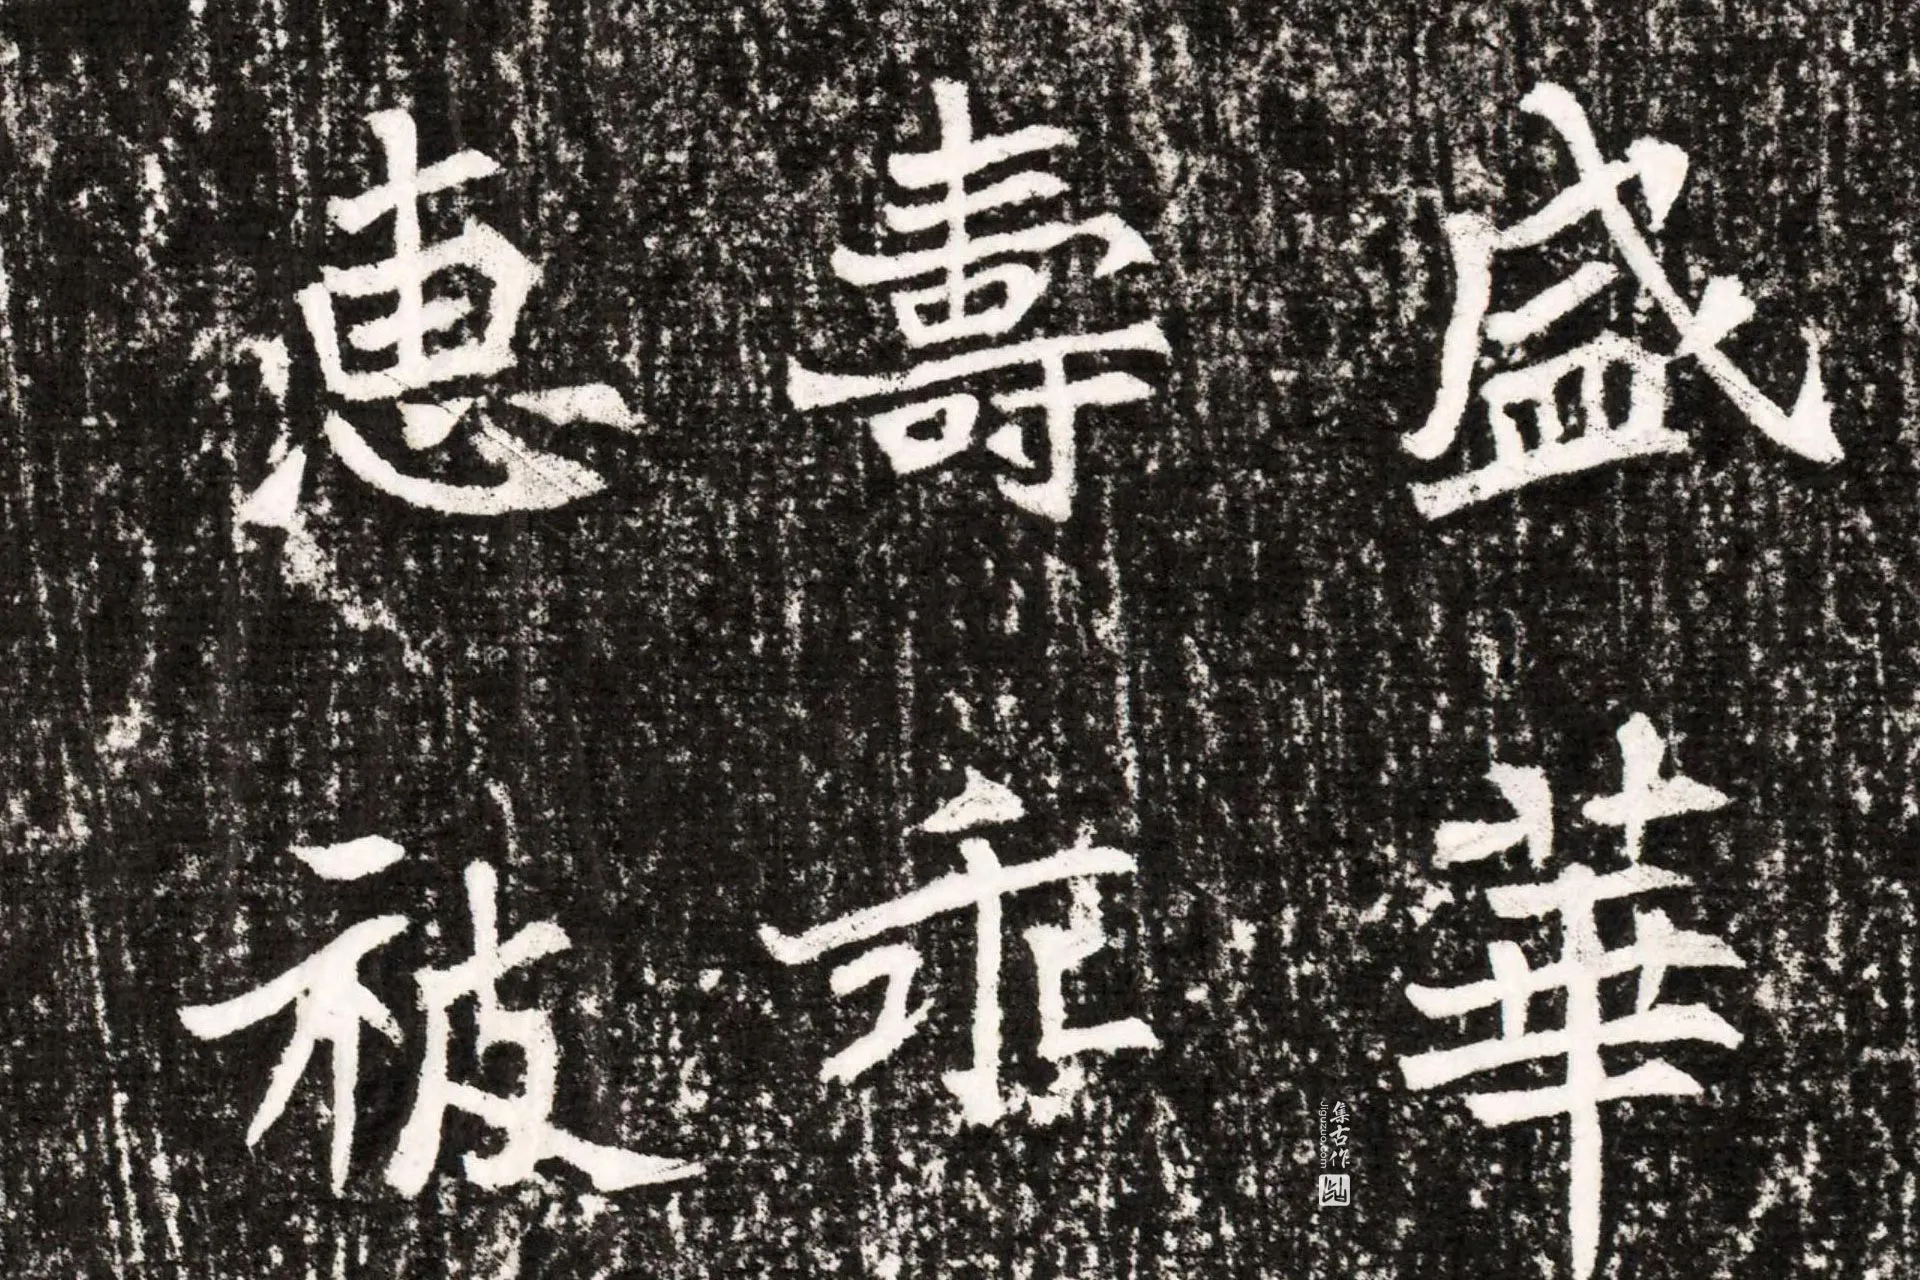 盛華
壽垂
惠被
集古作
Jiguzuo.com